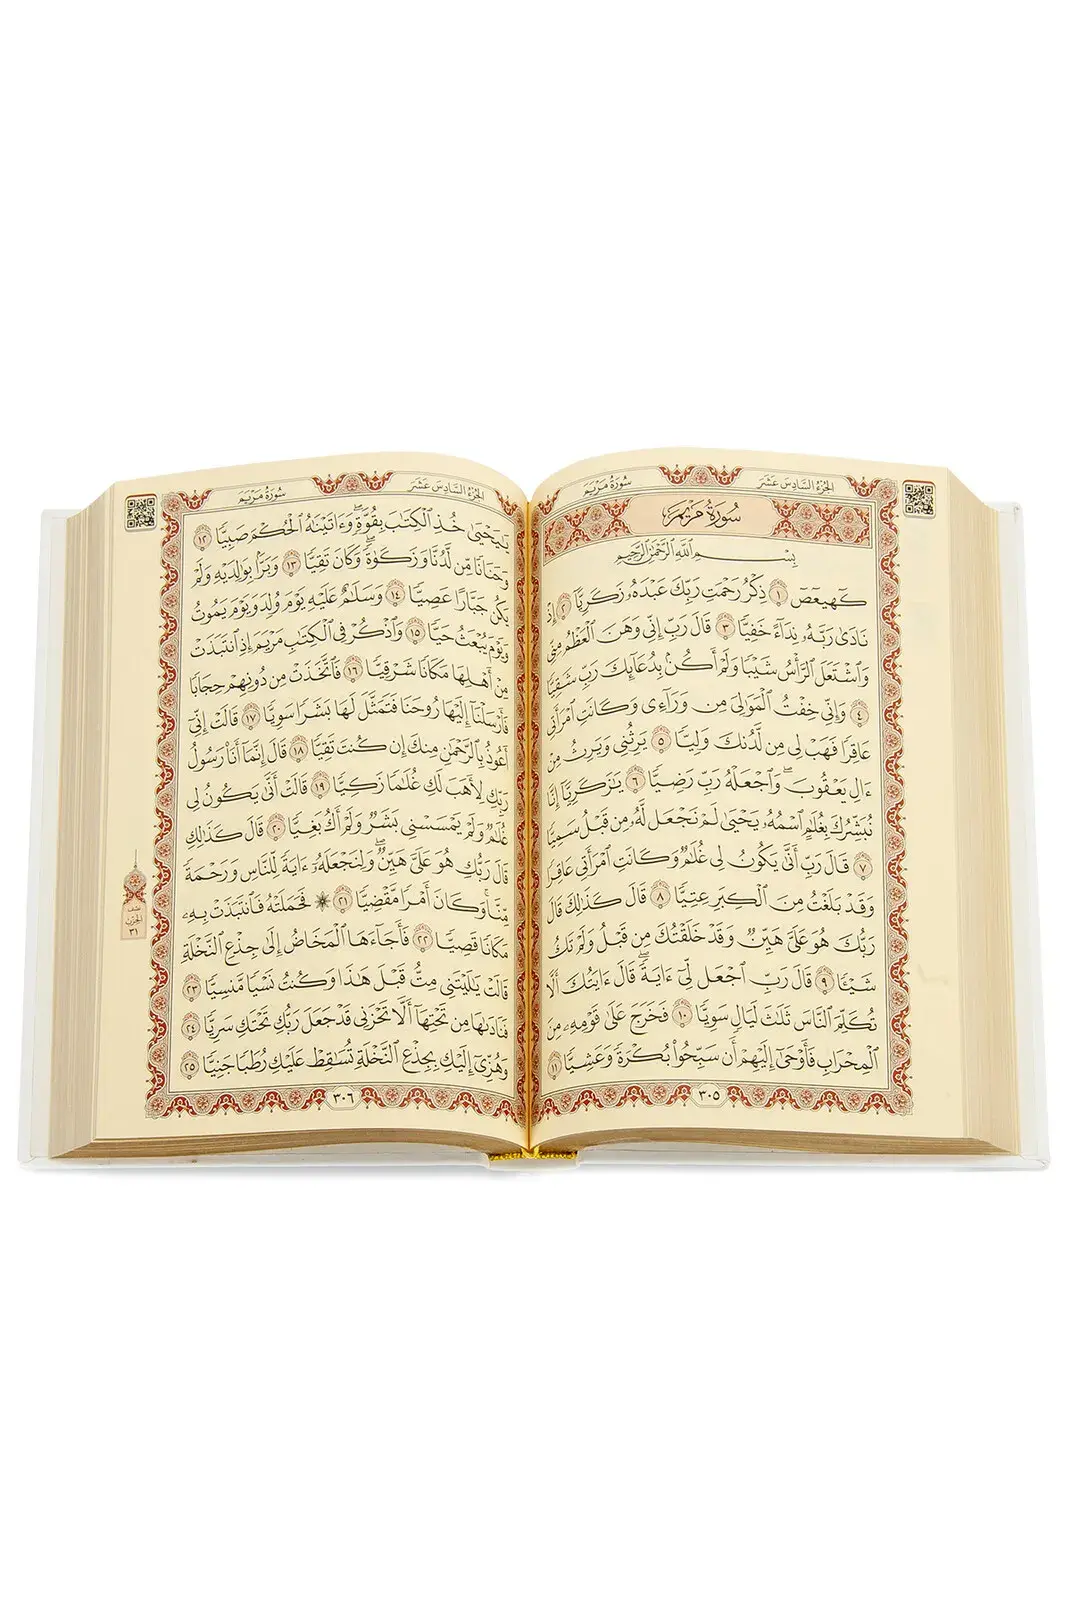 سُورَةُ مَرْيَم
الجُزْءُ السَّادِسَ عَشَرَ
سُورَةُ مَرْيَمَ
بِسْمِ ٱللَّهِ ٱلرَّحْمَٰنِ ٱلرَّحِيمِ
كٓهيعٓصٓ ١ ذِكْرُ رَحْمَتِ رَبِّكَ عَبْدَهُۥ زَكَرِيَّآ ٢ إِذْ
نَادَىٰ رَبَّهُۥ نِدَآءً خَفِيًّا ٣ قَالَ رَبِّ إِنِّي وَهَنَ ٱلْعَظْمُ مِنِّي
وَٱشْتَعَلَ ٱلرَّأْسُ شَيْبًا وَلَمْ أَكُنۢ بِدُعَآئِكَ رَبِّ شَقِيًّا
٤ وَإِنِّي خِفْتُ ٱلْمَوَٰلِيَ مِن وَرَآءِي وَكَانَتِ ٱمْرَأَتِي
عَاقِرًا فَهَبْ لِي مِن لَّدُنكَ وَلِيًّا ٥ يَرِثُنِي وَيَرِثُ مِنْ
ءَالِ يَعْقُوبَۖ وَٱجْعَلْهُ رَبِّ رَضِيًّا ٦ يَٰزَكَرِيَّآ إِنَّا
نُبَشِّرُكَ بِغُلَٰمٍ ٱسْمُهُۥ يَحْيَىٰ لَمْ نَجْعَل لَّهُۥ مِن قَبْلُ سَمِيًّا
٧ قَالَ رَبِّ أَنَّىٰ يَكُونُ لِي غُلَٰمٌ وَكَانَتِ ٱمْرَأَتِي عَاقِرًا
وَقَدْ بَلَغْتُ مِنَ ٱلْكِبَرِ عِتِيًّا ٨ قَالَ كَذَٰلِكَ قَالَ
رَبُّكَ هُوَ عَلَيَّ هَيِّنٌ وَقَدْ خَلَقْتُكَ مِن قَبْلُ وَلَمْ تَكُ
شَيْـًٔا ٩ قَالَ رَبِّ ٱجْعَل لِّيٓ ءَايَةًۖ قَالَ ءَايَتُكَ أَلَّا
تُكَلِّمَ ٱلنَّاسَ ثَلَٰثَ لَيَالٍ سَوِيًّا ١٠ فَخَرَجَ عَلَىٰ قَوْمِهِۦ مِنَ
ٱلْمِحْرَابِ فَأَوْحَىٰٓ إِلَيْهِمْ أَن سَبِّحُوا۟ بُكْرَةً وَعَشِيًّا ١١
٣٠٥
سُورَةُ مَرْيَم
الجُزْءُ السَّادِسَ عَشَرَ
يَٰيَحْيَىٰ خُذِ ٱلْكِتَٰبَ بِقُوَّةٍۖ وَءَاتَيْنَٰهُ ٱلْحُكْمَ صَبِيًّا ١٢
وَحَنَانًا مِّن لَّدُنَّا وَزَكَوٰةًۖ وَكَانَ تَقِيًّا ١٣ وَبَرًّۢا بِوَٰلِدَيْهِ وَلَمْ
يَكُن جَبَّارًا عَصِيًّا ١٤ وَسَلَٰمٌ عَلَيْهِ يَوْمَ وُلِدَ وَيَوْمَ يَمُوتُ
وَيَوْمَ يُبْعَثُ حَيًّا ١٥ وَٱذْكُرْ فِي ٱلْكِتَٰبِ مَرْيَمَ إِذِ ٱنتَبَذَتْ
مِنْ أَهْلِهَا مَكَانًا شَرْقِيًّا ١٦ فَٱتَّخَذَتْ مِن دُونِهِمْ حِجَابًا
فَأَرْسَلْنَآ إِلَيْهَا رُوحَنَا فَتَمَثَّلَ لَهَا بَشَرًا سَوِيًّا ١٧ قَالَتْ إِنِّيٓ
أَعُوذُ بِٱلرَّحْمَٰنِ مِنكَ إِن كُنتَ تَقِيًّا ١٨ قَالَ إِنَّمَآ أَنَا۠ رَسُولُ
رَبِّكِ لِأَهَبَ لَكِ غُلَٰمًا زَكِيًّا ١٩ قَالَتْ أَنَّىٰ يَكُونُ لِي
غُلَٰمٌ وَلَمْ يَمْسَسْنِي بَشَرٌ وَلَمْ أَكُ بَغِيًّا ٢٠ قَالَ كَذَٰلِكِ
قَالَ رَبُّكِ هُوَ عَلَيَّ هَيِّنٌۖ وَلِنَجْعَلَهُۥٓ ءَايَةً لِّلنَّاسِ وَرَحْمَةً
مِّنَّاۚ وَكَانَ أَمْرًا مَّقْضِيًّا ٢١ ۞ فَحَمَلَتْهُ فَٱنتَبَذَتْ بِهِۦ
مَكَانًا قَصِيًّا ٢٢ فَأَجَآءَهَا ٱلْمَخَاضُ إِلَىٰ جِذْعِ ٱلنَّخْلَةِ
قَالَتْ يَٰلَيْتَنِي مِتُّ قَبْلَ هَٰذَا وَكُنتُ نَسْيًا مَّنسِيًّا ٢٣
فَنَادَىٰهَا مِن تَحْتِهَآ أَلَّا تَحْزَنِي قَدْ جَعَلَ رَبُّكِ تَحْتَكِ سَرِيًّا ٢٤
وَهُزِّيٓ إِلَيْكِ بِجِذْعِ ٱلنَّخْلَةِ تُسَٰقِطْ عَلَيْكِ رُطَبًا جَنِيًّا ٢٥
نصف
الحزب
٣١
٣٠٦